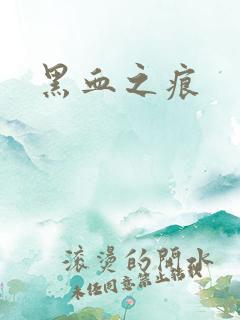 黑血之痕
滚烫的開水
未经同意禁止转载